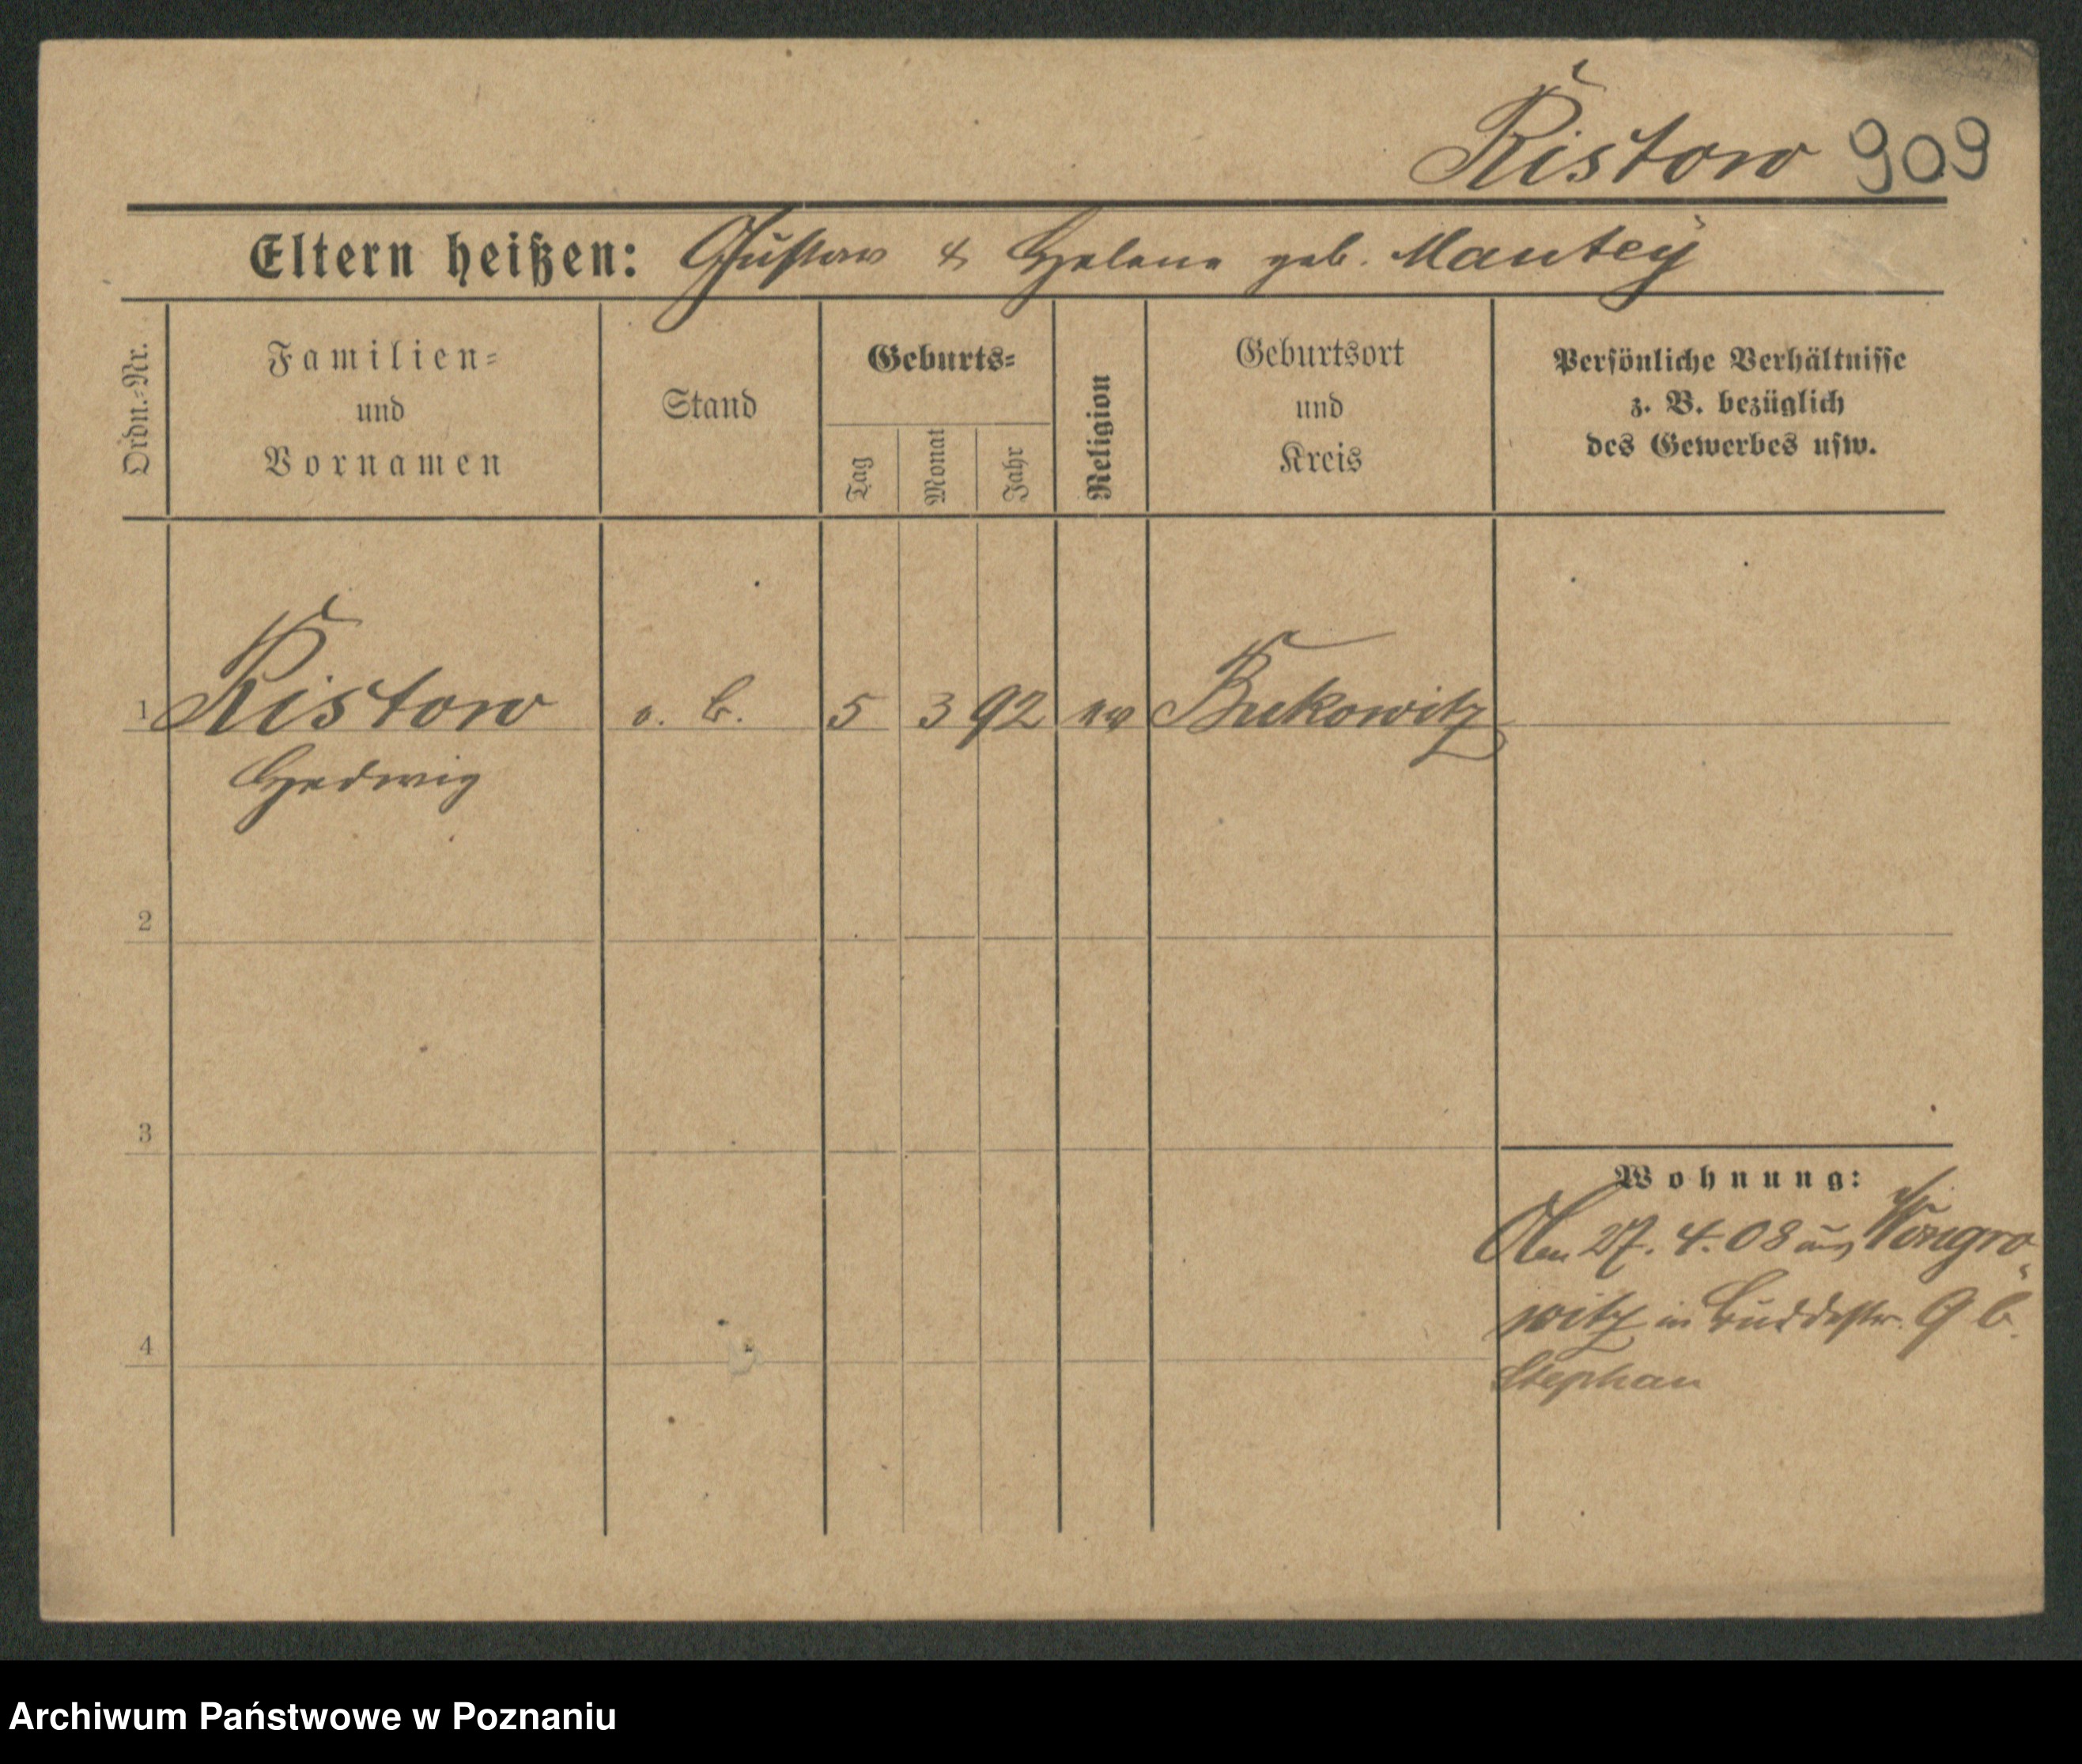 Ristow 909
Eltern heißen: Gustav & Helene geb. Mantey
Ordn.-Nr.
Familien-
und
Vornamen
Stand
Geburts-
Tag
Monat
Jahr
Religion
Geburtsort
und
Kreis
Persönliche Verhältnisse
z. B. bezüglich
des Gewerbes usw.
1 Ristow o. B. 5 3 92 ev Bukowitz
Hedwig
2
3
4
Wohnung:
Am 27. 4. 08 aus Wongro-
witz in Buddestr. 9 b.
Stephan
Archiwum Państwowe w Poznaniu